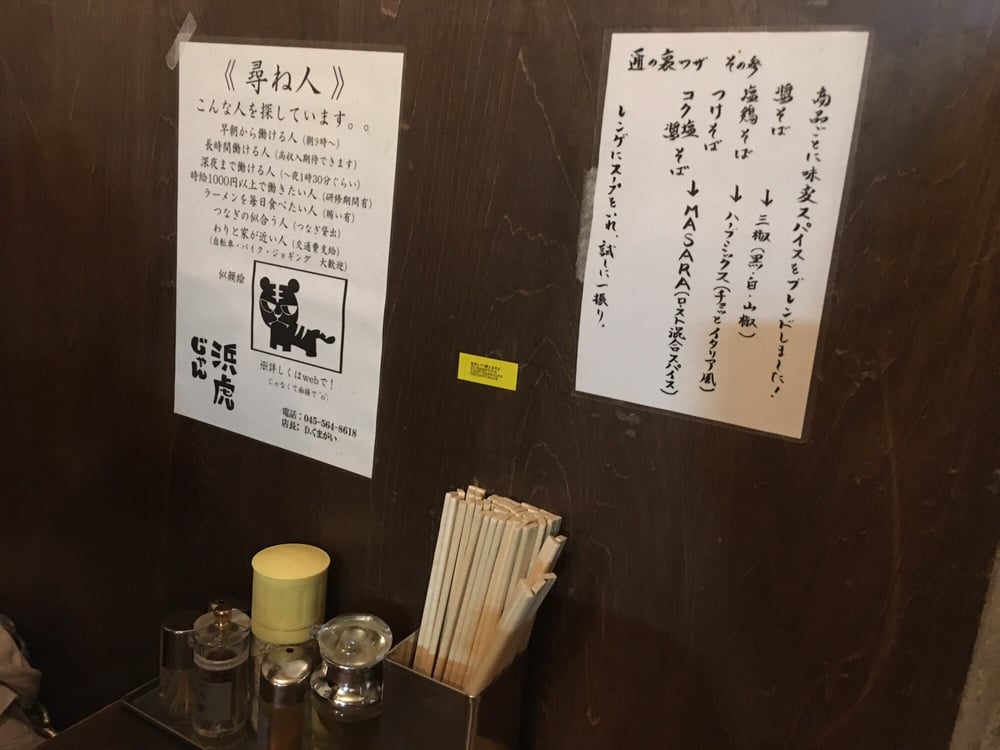 《尋ね人》
こんな人を探しています。。
早朝から働ける人（朝9時〜）
長時間働ける人（高収入期待できます）
深夜まで働ける人（〜夜1時30分ぐらい）
時給1000円以上で働きたい人（研修期間有）
ラーメンを毎日食べたい人（賄い有）
つなぎの似合う人（つなぎ貸出）
わりと家が近い人（交通費支給）
（自転車・バイク・ジョギング　大歓迎）
似顔絵
浜虎
じゃん
※詳しくはwebで！
じゃなくて面接で
電話：045-564-8618
店長：D.くまがい
通の裏ワザ　その参
商品ごとに味変スパイスをブレンドしました！
醤そば
塩鶏そば → 三椒（黒・白・山椒）
つけそば → ハーブミックス（チョッとイタリア風）
コク塩醤そば → MASARA（ロースト混合スパイス）
レンゲにスープをいれ、試しに一振り。